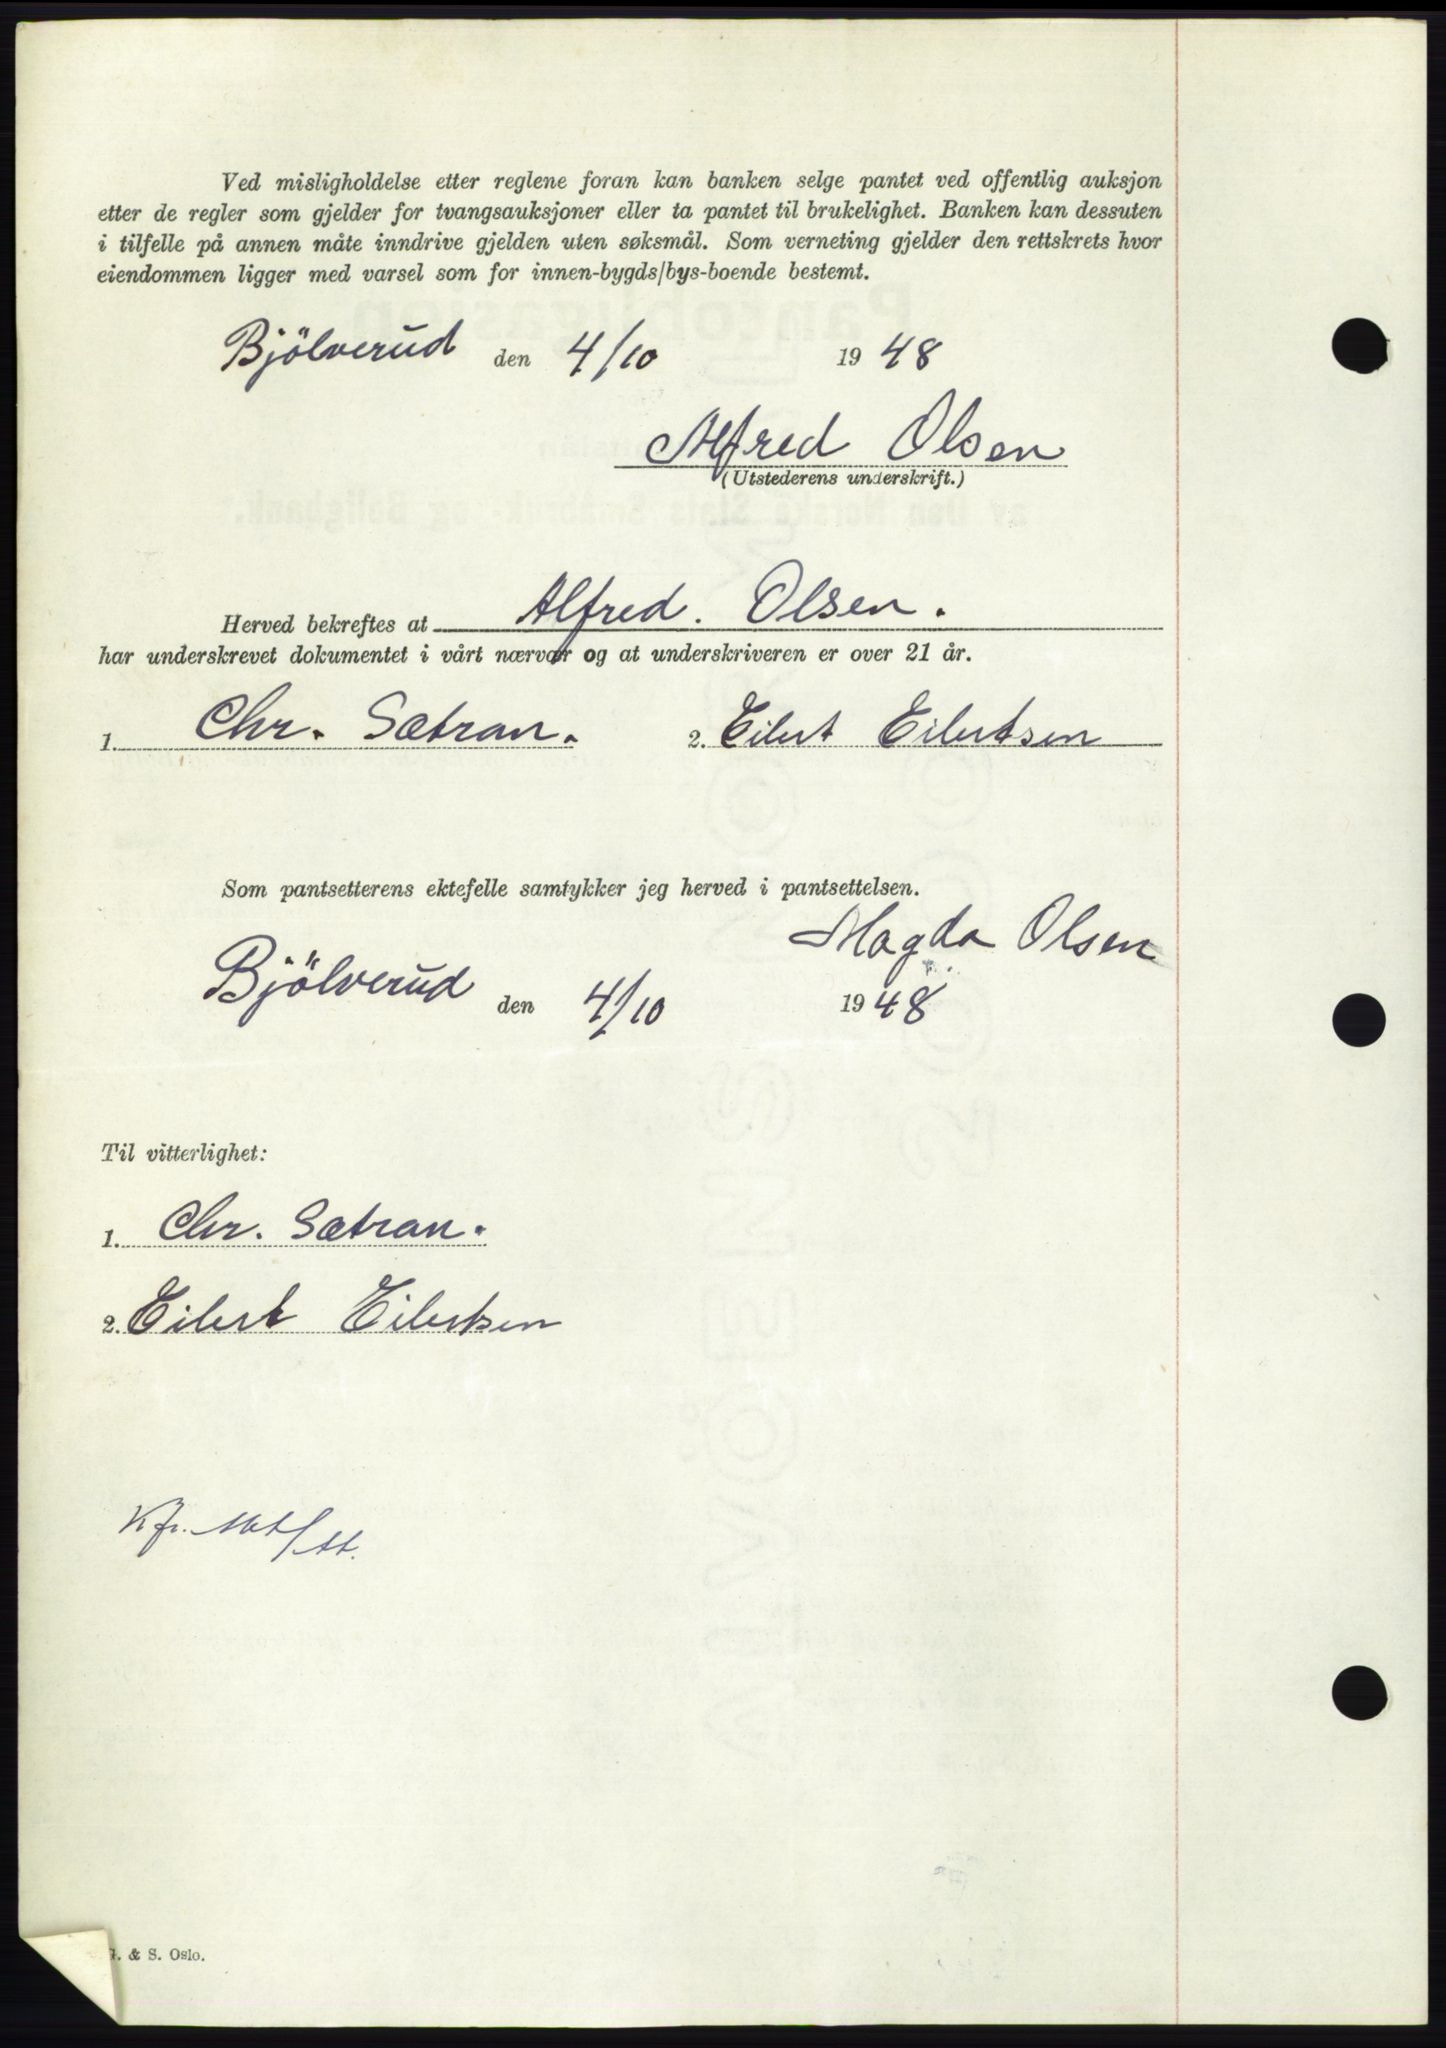 Ved misligholdelse etter reglene foran kan banken selge pantet ved offentlig auksjon
etter de regler som gjelder for tvangsauksjoner eller ta pantet til brukelighet. Banken kan dessuten
i tilfelle på annen måte inndrive gjelden uten søksmål. Som verneting gjelder den rettskrets hvor
eiendommen ligger med varsel som for innen-bygds/bys-boende bestemt.
Bjölverud den 4/10 1948
Alfred Olsen
(Utstederens underskrift.)
Herved bekreftes at Alfred. Olsen.
har underskrevet dokumentet i vårt nærvær og at underskriveren er over 21 år.
1. Chr. Sætran. 2. Eilert Eilertsen
Som pantsetterens ektefelle samtykker jeg herved i pantsettelsen.
Magda Olsen
Bjölverud den 4/10 1948
Til vitterlighet:
1. Chr. Sætran.
2. Eilert Eilertsen
Kfr.
& S. Oslo.